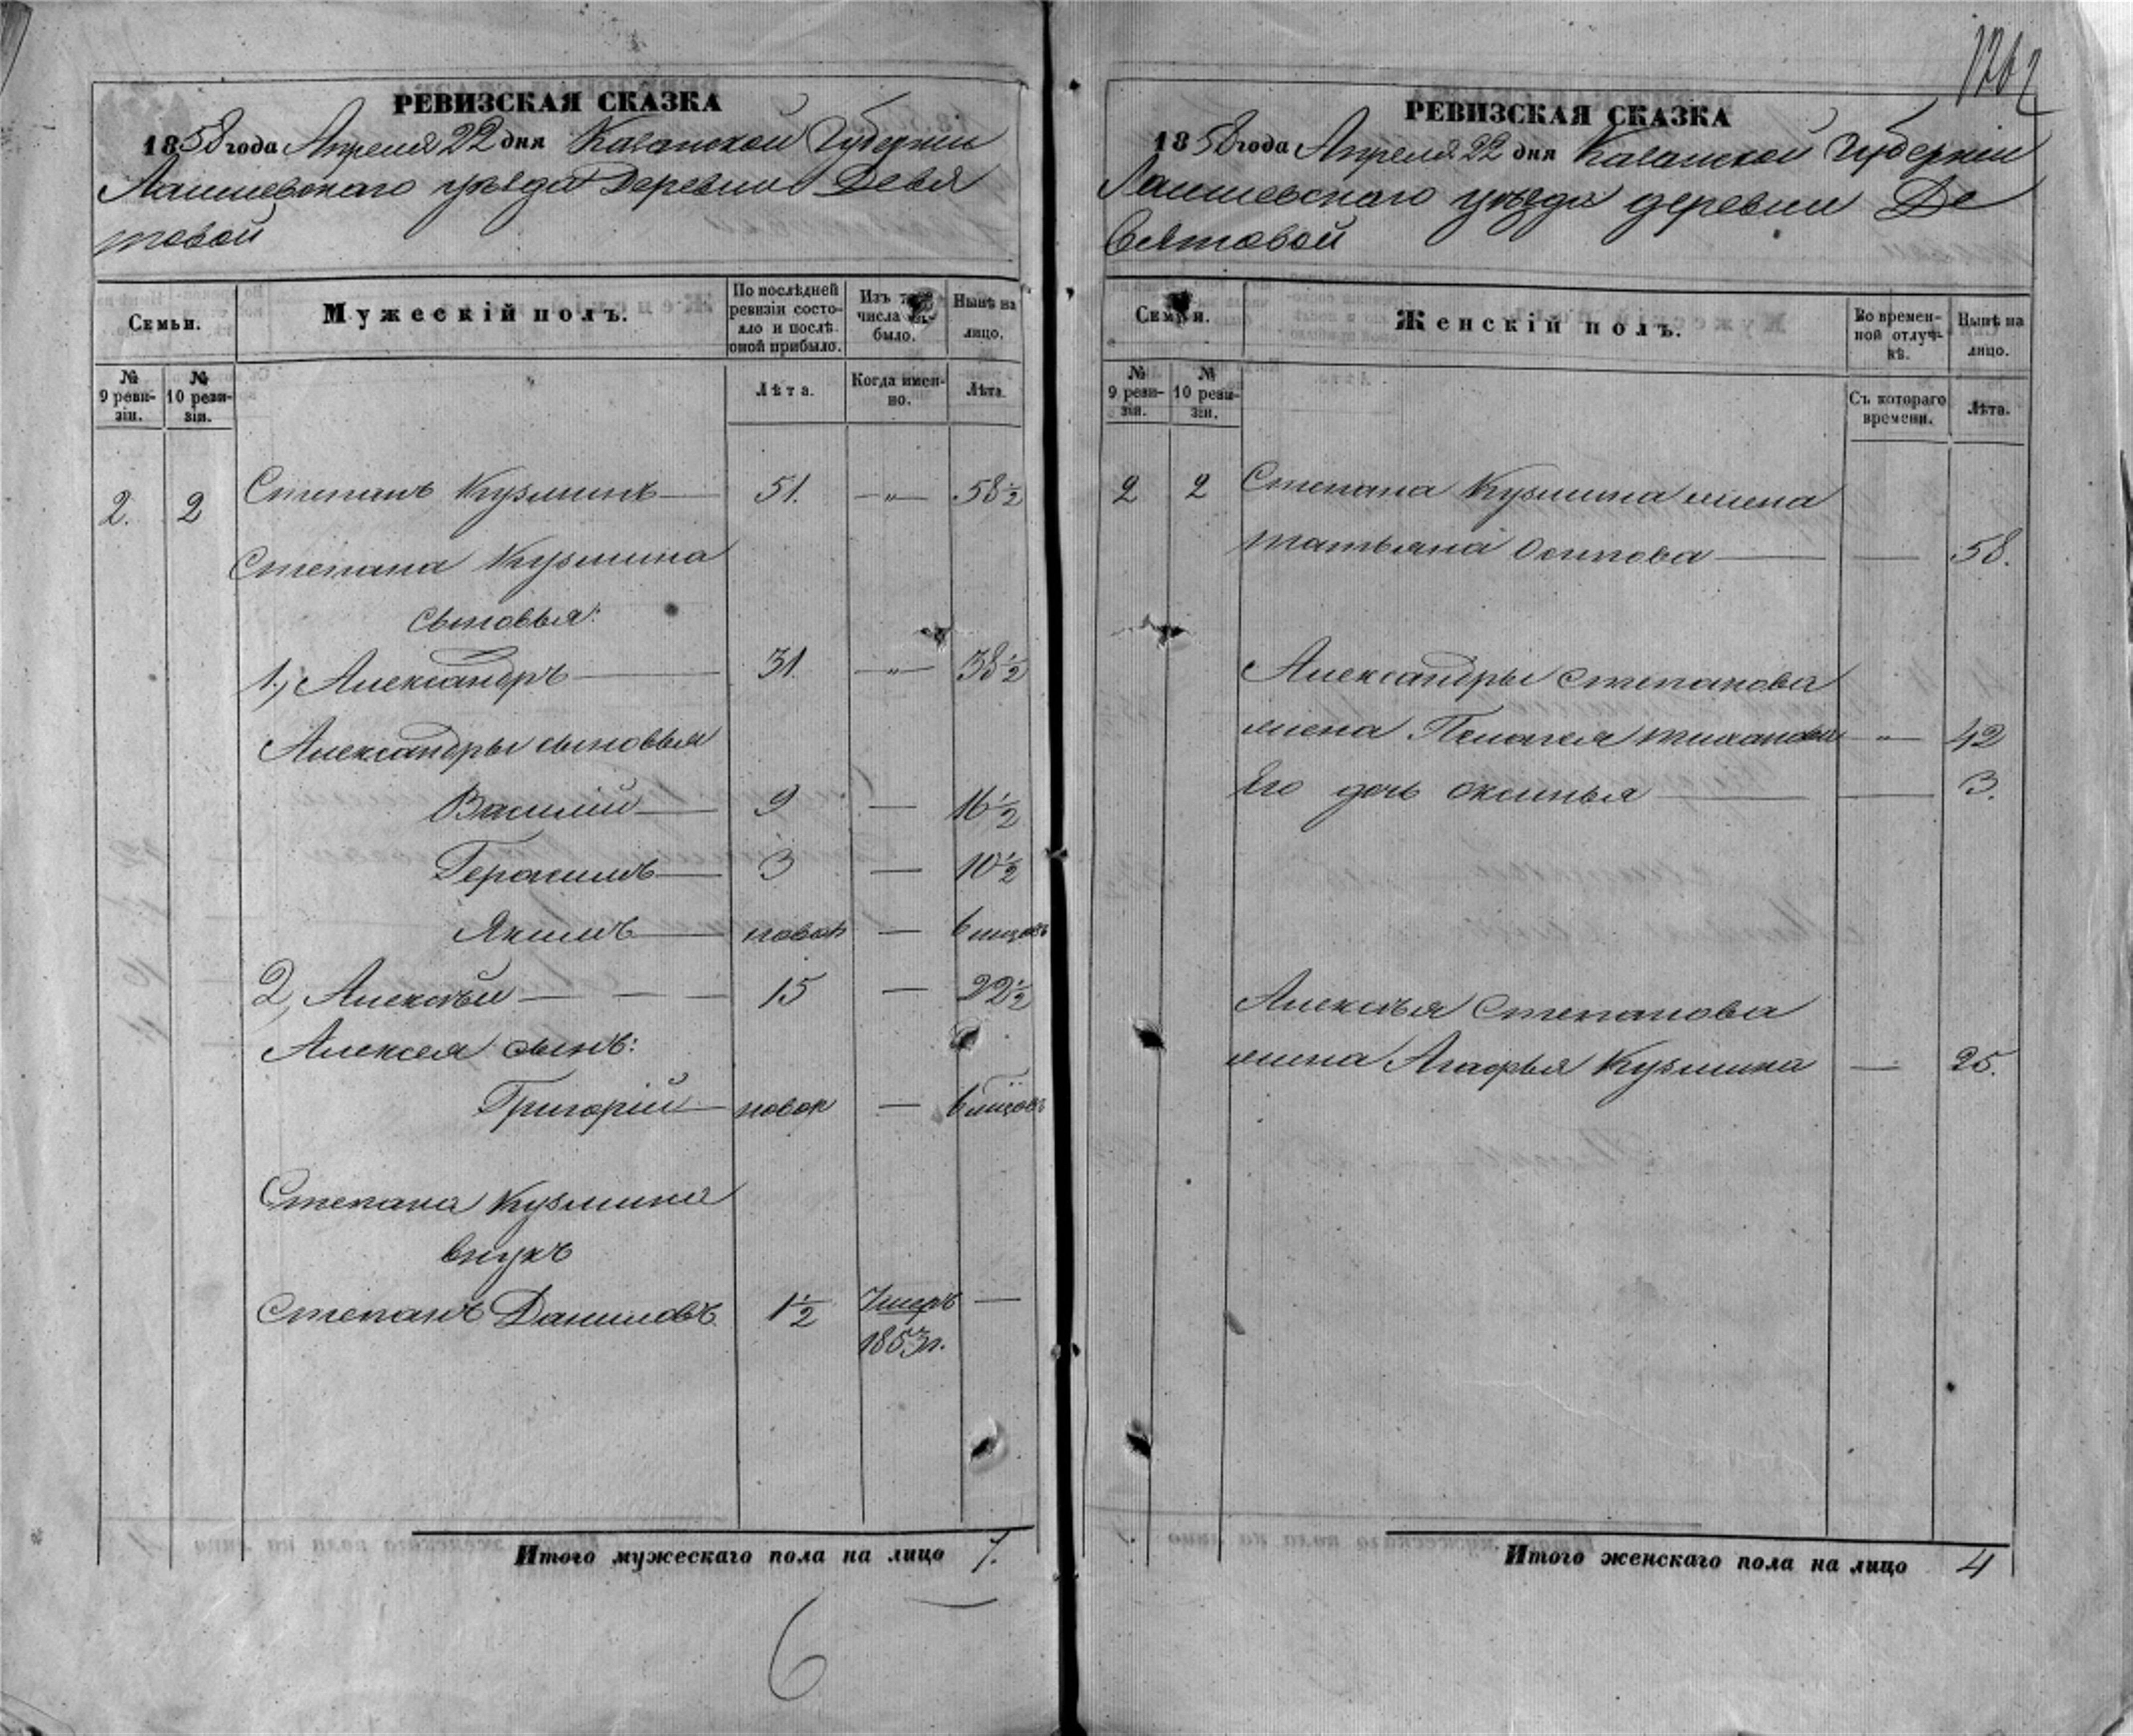 1262
РЕВИЗСКАЯ СКАЗКА
1858 года Апреля 22 дня Казанской Губернии
Лаишевскаго уѣзда Деревни Девя
товой
Семьи.
Мужескій полъ.
По послѣдней ревизіи состояло и послѣ оной прибыло.
Изъ того числа выбыло.
Нынѣ на лицо.
№ 9 ревизіи.
№ 10 ревизіи.
Лѣта.
Когда именно.
Лѣта.
2. 2 Степанъ Кузминъ — 51. — „ — 58 ½
Степана Кузмина
сыновья:
1, Александръ — 31. — „ — 38 ½
Александры сыновья
Василий — 9 — 16 ½
Герасимъ — 3 — 10 ½
Якимъ — новор — 6 мцовъ
2, Алексѣй — — — 15 — 22 ½
Алексея сынъ:
Григорій — новор — 6 мцовъ
Степана Кузмина
внукъ
Степанъ Даниловъ 1 ½ Умеръ —
1853 г.
Итого мужескаго пола на лицо 7.
6
РЕВИЗСКАЯ СКАЗКА
1858 года Апреля 22 дня Казанской Губернии
Лаишевскаго уѣзда деревни Де
вятовой
Семьи.
Женскій полъ.
Во временной отлучкѣ.
Нынѣ на лицо.
№ 9 ревизіи.
№ 10 ревизіи.
Съ котораго времени.
Лѣта.
2 2 Степана Кузмина жена
татьяна Осипова — — 58.
Александры Степанова
жена Пелагея тиханова — „ — 42
Его дочь Оксинья — — 3.
Алексѣя Степанова
жена Агафья Кузмина — 25.
Итого женскаго пола на лицо 4